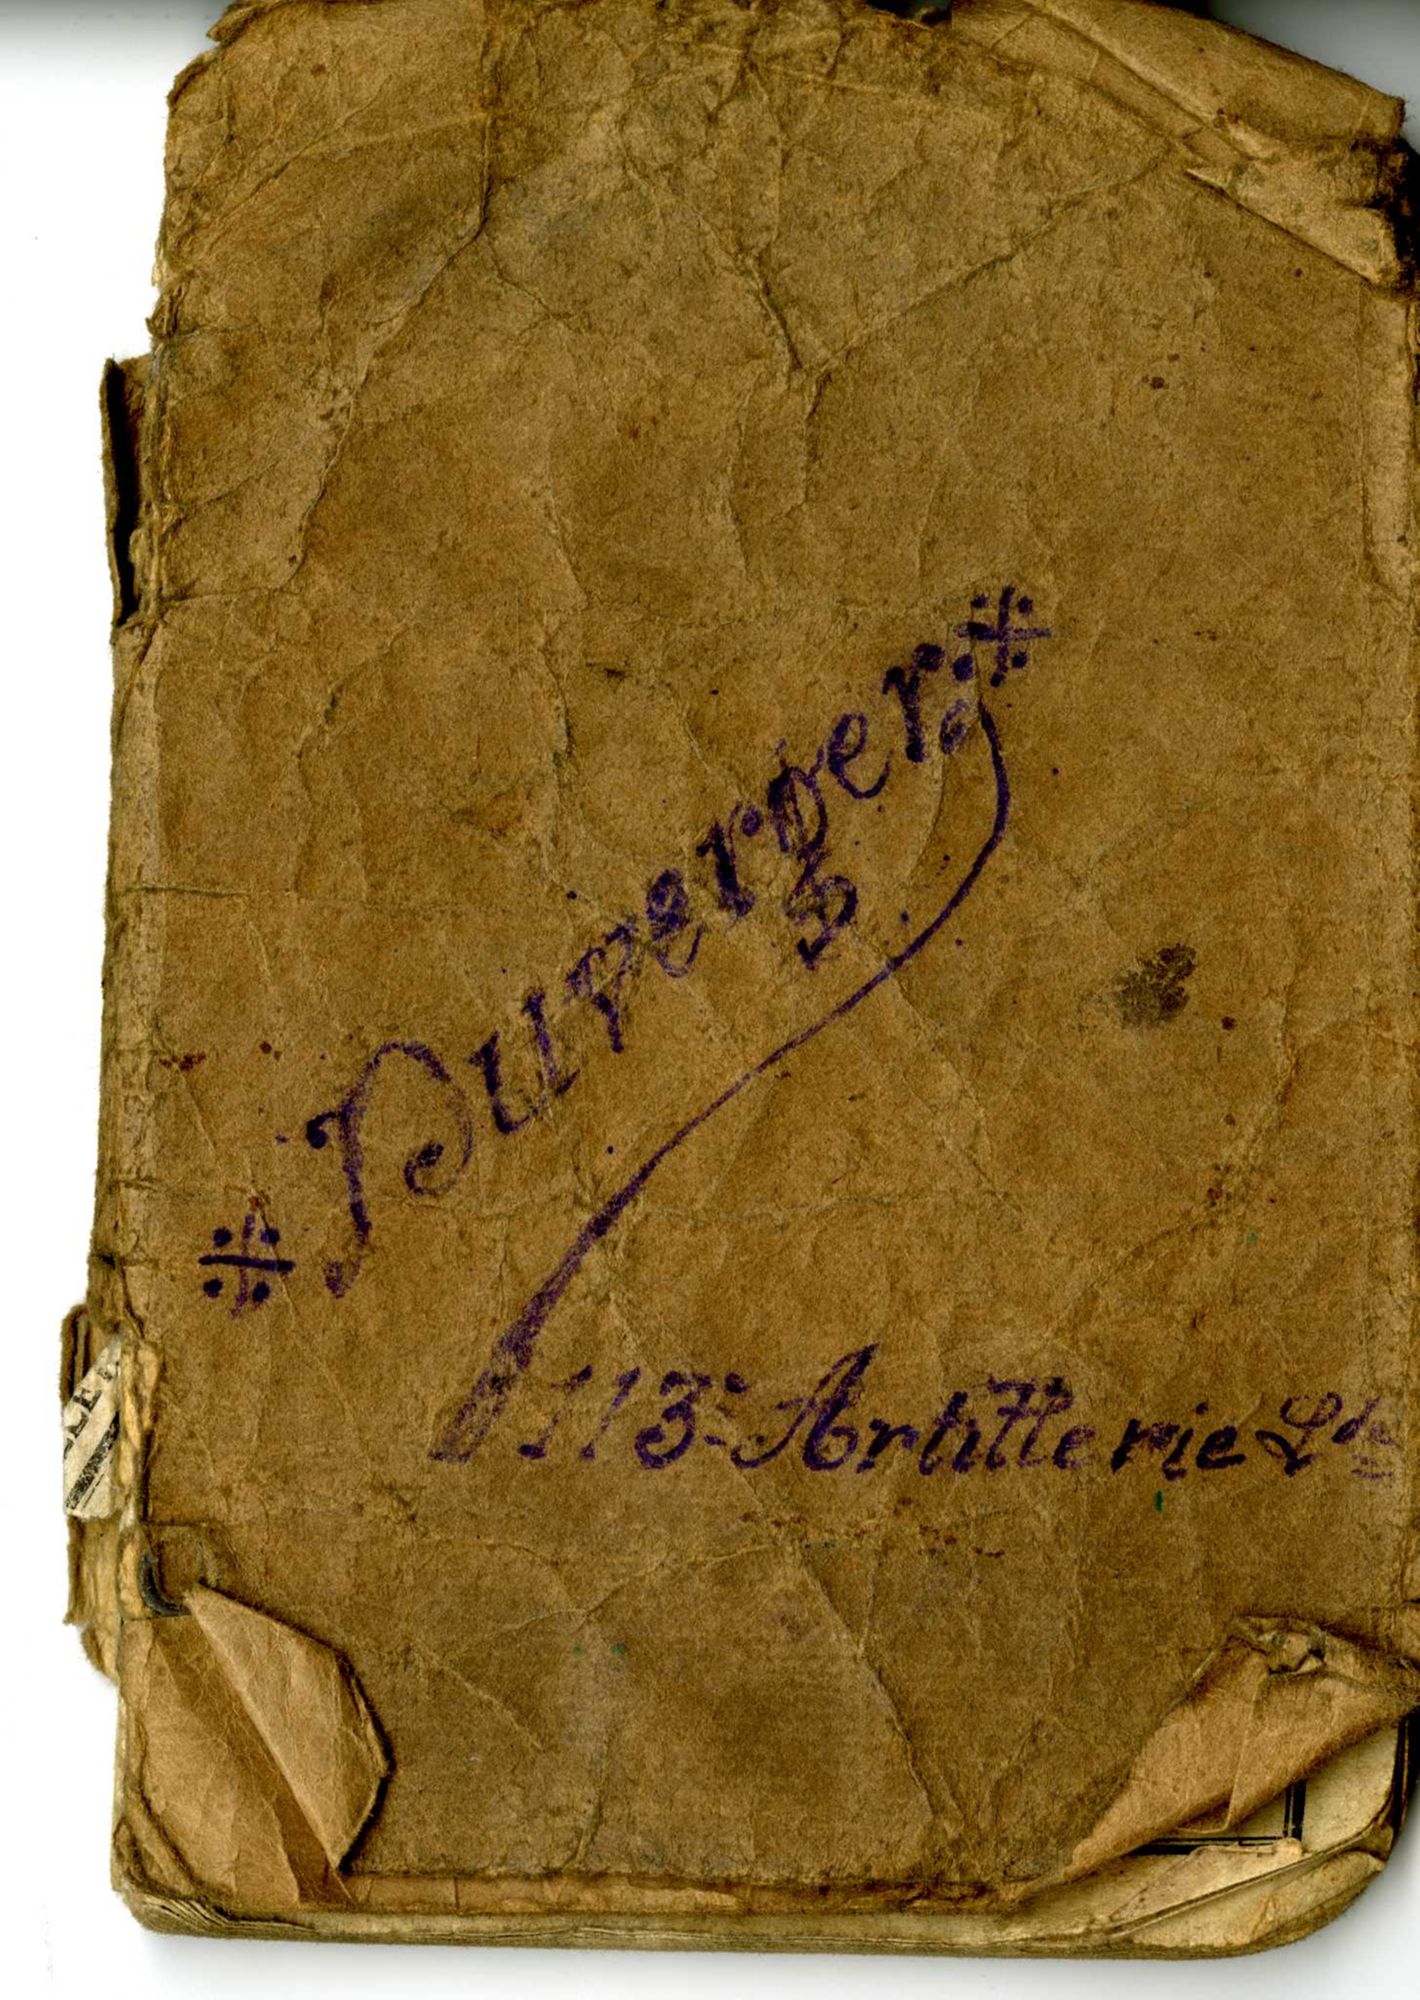 Duverger
113e Artillerie Lde